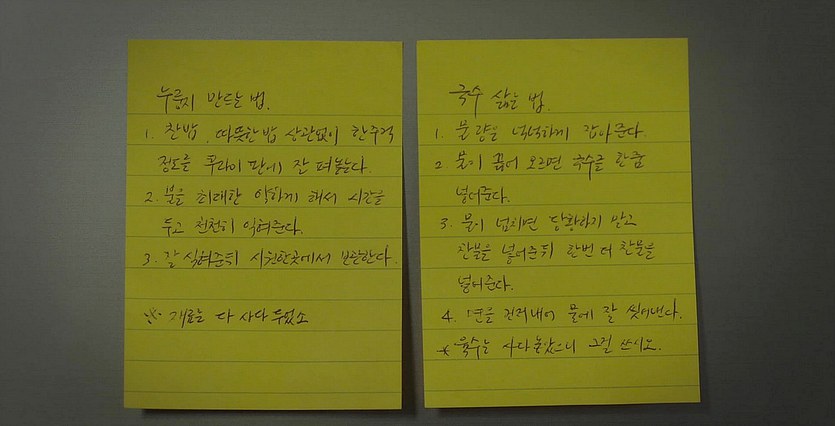 누룽지 만드는 법.
1. 찬밥, 따뜻한 밥 상관없이 한주걱
정도를 후라이 판에 잘 펴놓는다.
2. 불을 최대한 약하게 해서 시간을
두고 천천히 익혀준다.
3. 잘 식혀준뒤 시원한곳에서 보관한다.
※ 재료는 다 사다 두었소
국수 삶는 법.
1. 물량을 넉넉하게 잡아준다.
2. 물이 끓어 오르면 국수를 한줌
넣어준다.
3. 물이 넘치면 당황하지 말고
찬물을 넣어준뒤 한번 더 찬물을
넣어준다.
4. 면을 건져내어 물에 잘 씻어낸다.
* 육수는 사다놓았으니 그걸 쓰시오.